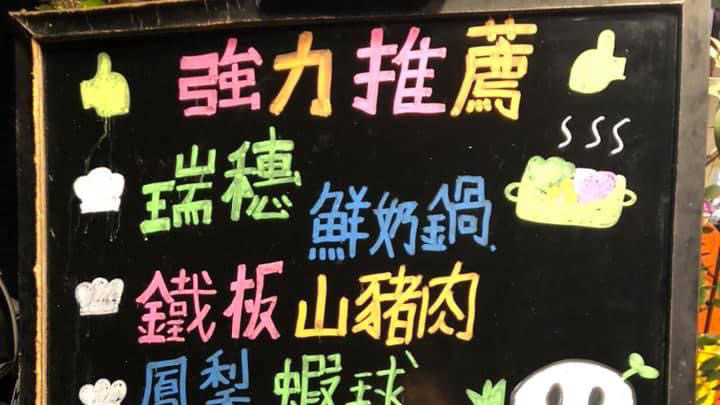 強力推薦
瑞穗鮮奶鍋
鐵板山豬肉
鳳梨蝦球